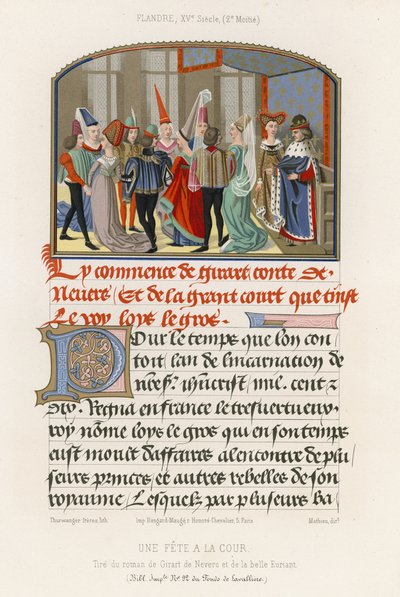 FLANDRE, XVᵉ Siècle, (2ᵉ Moitié.)
Cy commence de girart conte de
Nevers / Et de la grant court que tinst
Le roy loys le gros.
Pour le temps que lon con
toit lan de lincarnation de
nr̄e sr̄ ihūcrist / mil. cent z
dix. Regna en france le tresvertueux
roy nōme loys le gros qui en son temps
eust moult daffaires alencontre de plu
seurs princes et autres rebelles de son
royaume / Lesquelz par pluseurs ba
Thurwanger frères, lith.
Imp. Hangard-Maugé r. Honoré-Chevalier, 5, Paris
Mathieu, dirᵗ.
UNE FÊTE A LA COUR.
Tiré du roman de Girart de Nevers et de la belle Euriant.
(Bibl. Impˡᵉ Nº 92 du Fonds de Lavallière.)